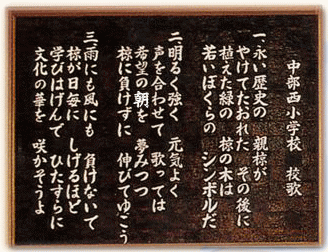 中部西小学校 校歌
一、永い歴史の 親椋が
やけてたおれた その後に
植えた緑の 椋の木は
若いぼくらの シンボルだ
二、明るく強く 元気よく
声を合わせて 歌っては
希望の朝を 夢みつつ
椋に負けずに 伸びてゆこう
三、雨にも風にも 負けないで
椋が日毎に しげるほど
学びはげんで ひたすらに
文化の華を 咲かそうよ